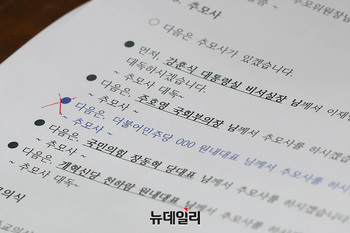 추모위원장님
추모사
○ 다음은 추모사가 있겠습니다.
● 먼저, 강훈식 대통령실 비서실장 님께서 이재
대독하시겠습니다.
~ 추모사 대독~
● 다음은, 주호영 국회부의장 님께서 추모사를 하시
~ 추모사 ~
● 다음은, 더불어민주당 000 원내대표 님께서 추모사를 하시
~ 추모사 ~
● 다음은, 국민의힘 장동혁 당대표 님께서 추모사를 하시겠
~ 추모사 ~
● 다음은, 개혁신당 천하람 원내대표 님께서 추모사를 하시
~ 추모사 대독~
뉴데일리